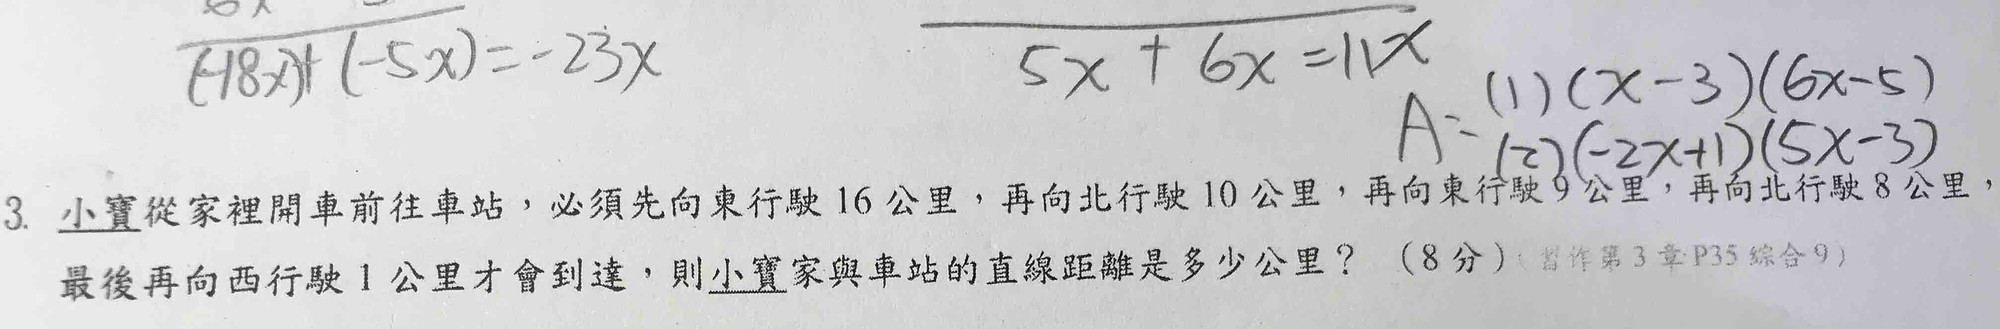 (-18x)+(-5x)=-23x
5x+6x=11x
A=(1)(x-3)(6x-5)
(2)(-2x+1)(5x-3)
3. 小寶從家裡開車前往車站，必須先向東行駛 16 公里，再向北行駛 10 公里，再向東行駛 9 公里，再向北行駛 8 公里，
最後再向西行駛 1 公里才會到達，則小寶家與車站的直線距離是多少公里？（8 分）（習作第 3 章 P35 綜合 9）